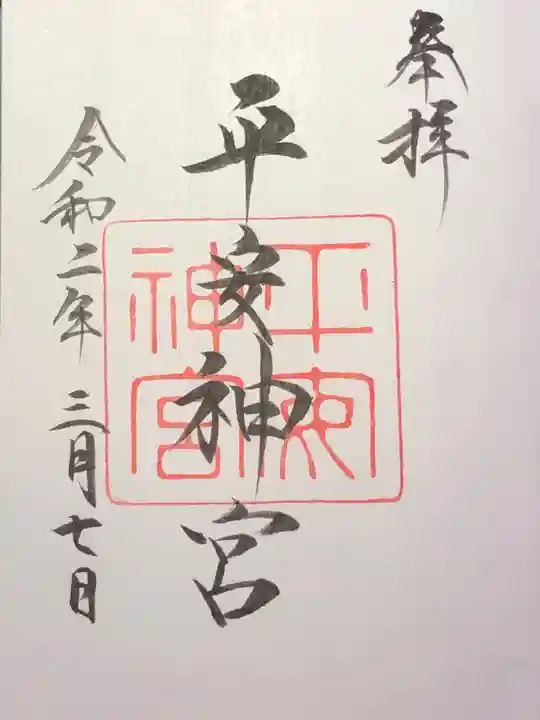 奉拝
平安神宮
平安神宮
令和二年 三月七日